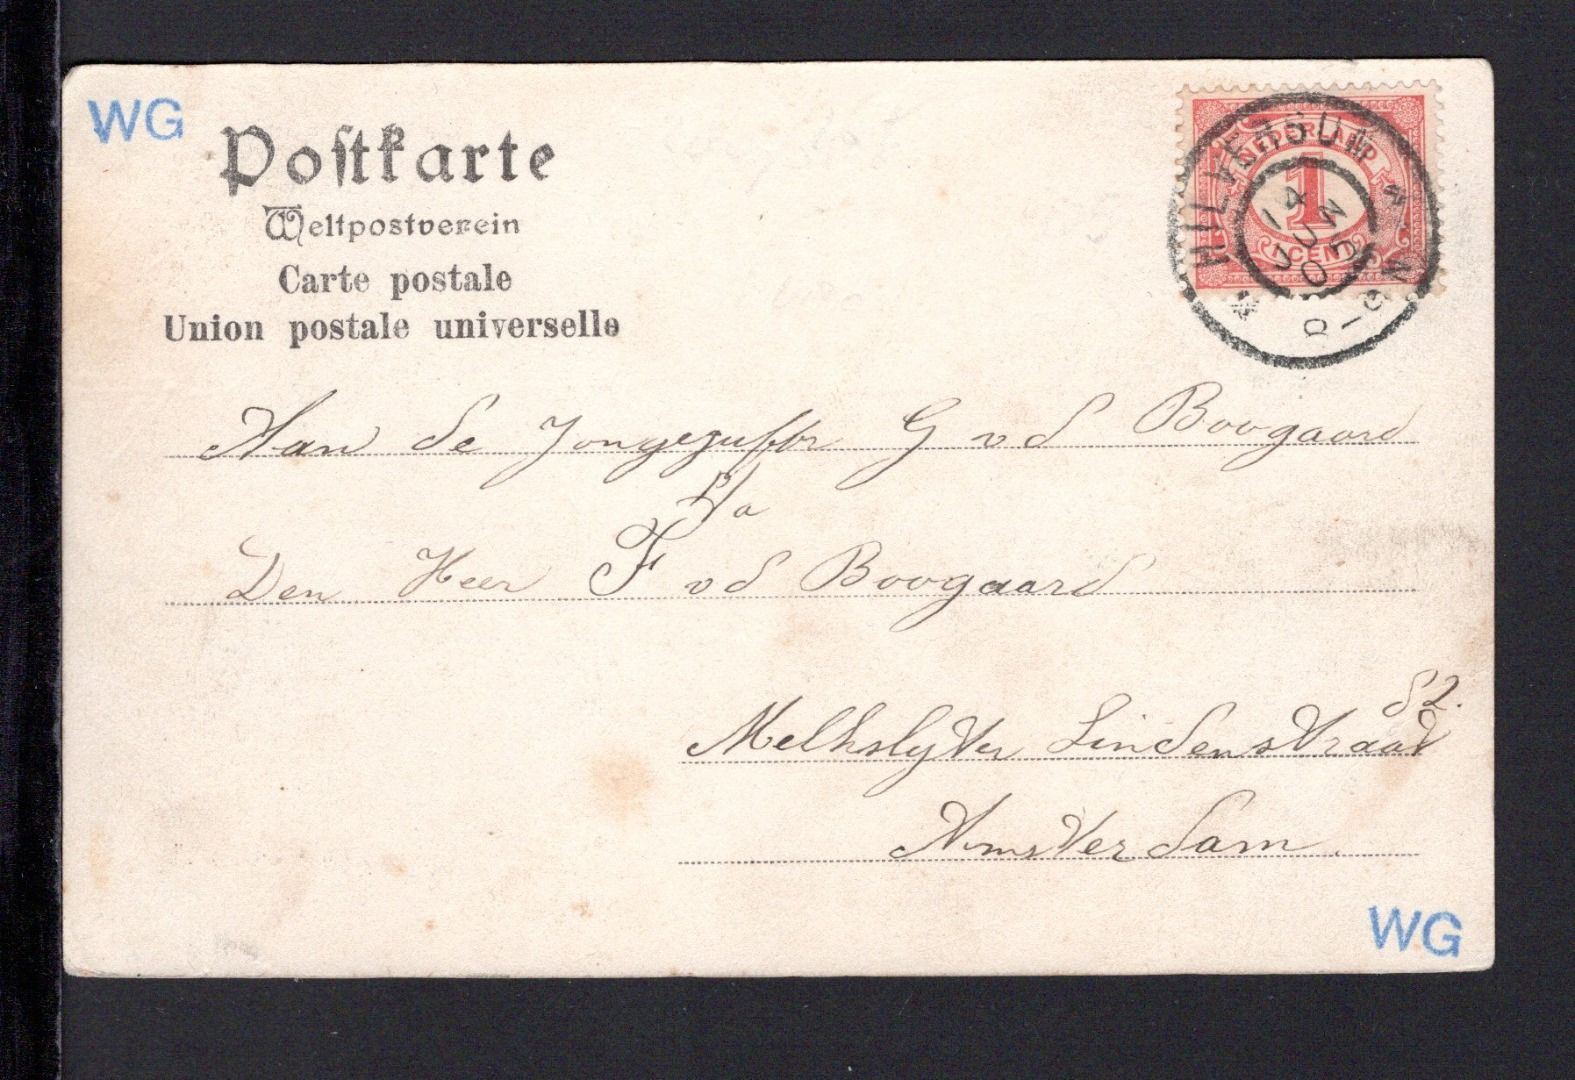 WG
Postkarte
Weltpostverein
Carte postale
Union postale universelle
NED. DRUKWERK
HILVERSUM
1
CENT
14 JUN 05
Aan de Jongejuffr G v d Boogaard
P/a
Den Heer F v d Boogaard
82.
Melkslyter Lindenstraat
Amsterdam.
WG